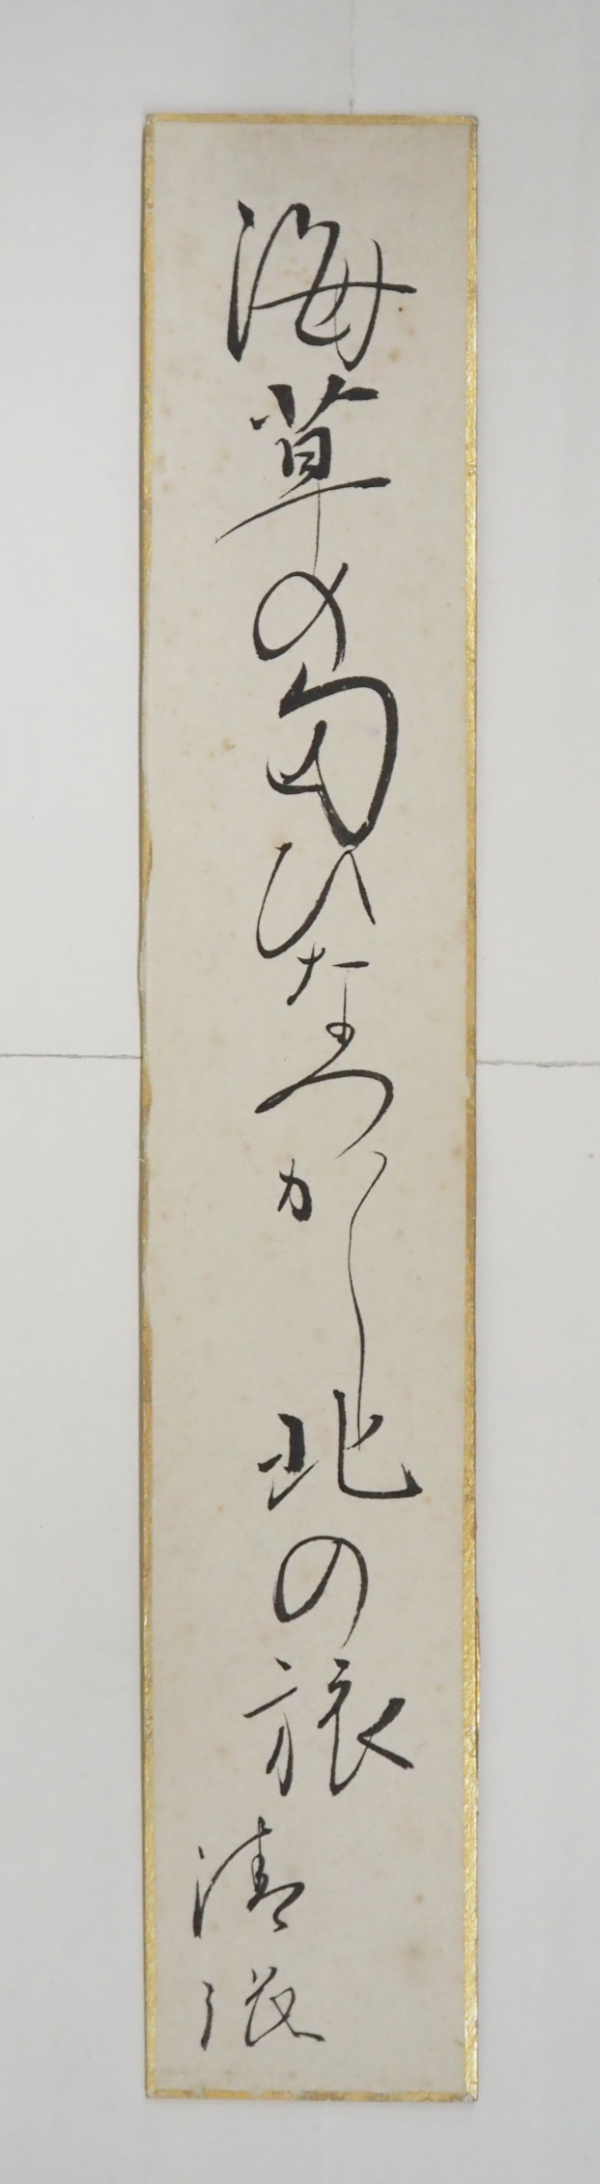 海草の匂ひなつかし北の旅